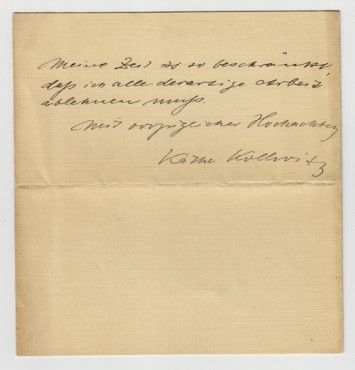 Meine Zeit ist so beschränkt,
daß ich alle derartige Arbeit
ablehnen muß.
Mit vorzüglicher Hochachtung
Käthe Kollwitz